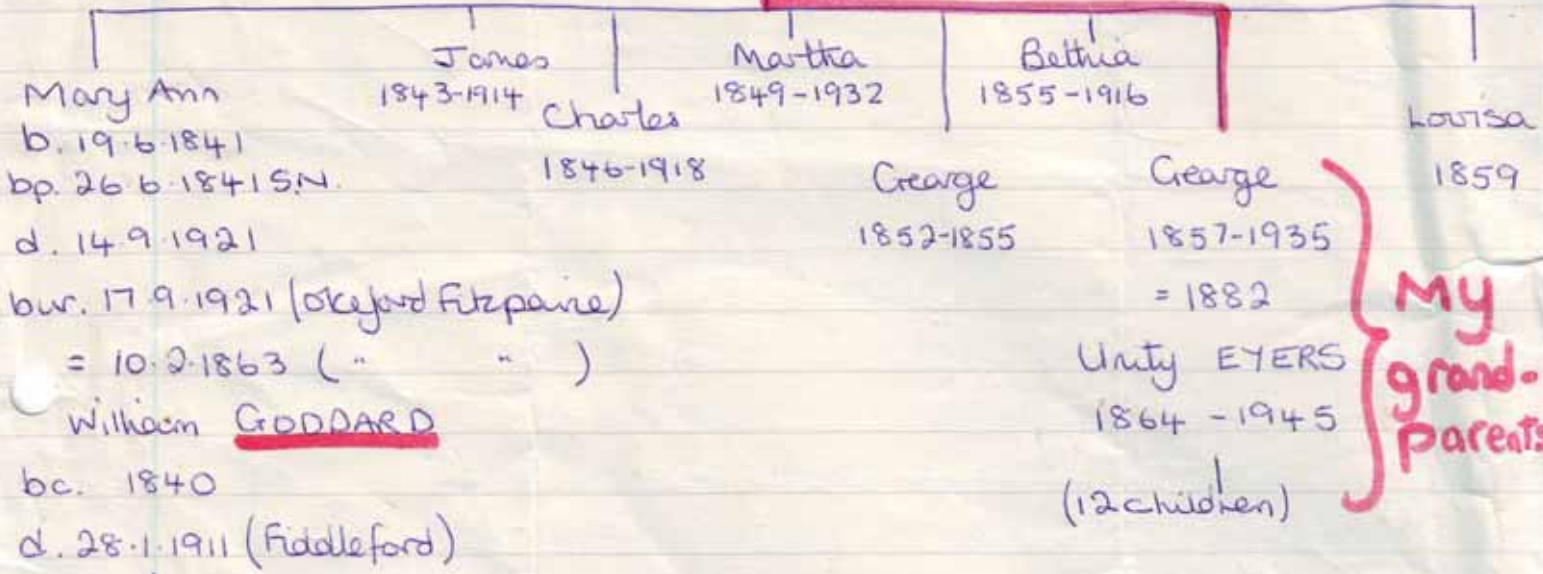 Mary Ann
b. 19.6.1841
bp. 26.6.1841 S.N.
d. 14.9.1921
bur. 17.9.1921 (Okeford Fitzpaine)
= 10.2.1863 ( " " )
William GODDARD
bc. 1840
d. 28.1.1911 (Fiddleford)
James
1843-1914
Charles
1846-1918
Martha
1849-1932
George
1852-1855
Bethia
1855-1916
George
1857-1935
= 1882
Unity EYERS
1864 - 1945
(12 children)
My
grand-
parents
Louisa
1859